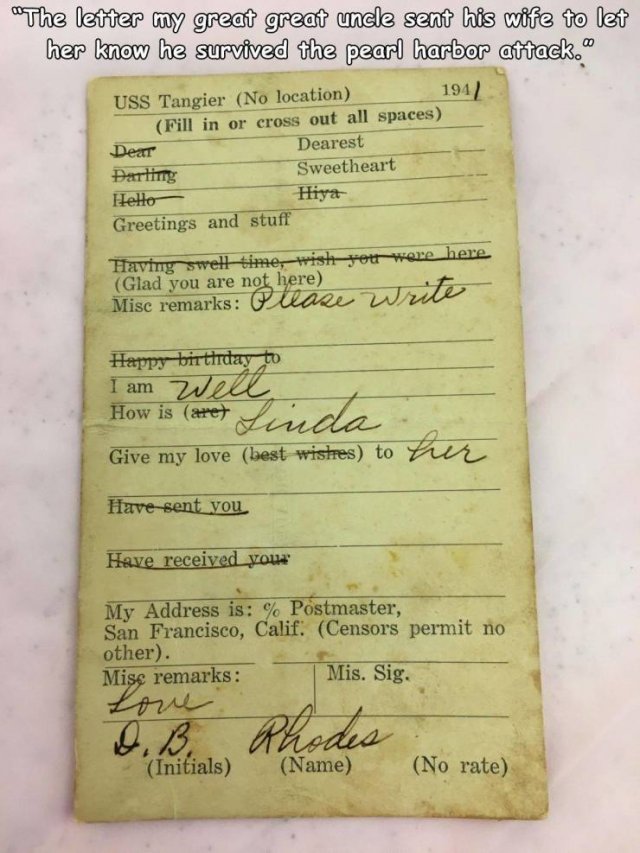 "The letter my great great uncle sent his wife to let
her know he survived the pearl harbor attack."
USS Tangier (No location) 1941
(Fill in or cross out all spaces)
Dear Dearest
Darling Sweetheart
Hello Hiya
Greetings and stuff
Having swell time, wish you were here
(Glad you are not here)
Misc remarks: Please write
Happy birthday to
I am well
How is (are) Linda
Give my love (best wishes) to her
Have sent you
Have received your
My Address is: % Postmaster,
San Francisco, Calif. (Censors permit no
other).
Misc remarks: Mis. Sig.
Love
D. B. Rhodes
(Initials) (Name) (No rate)